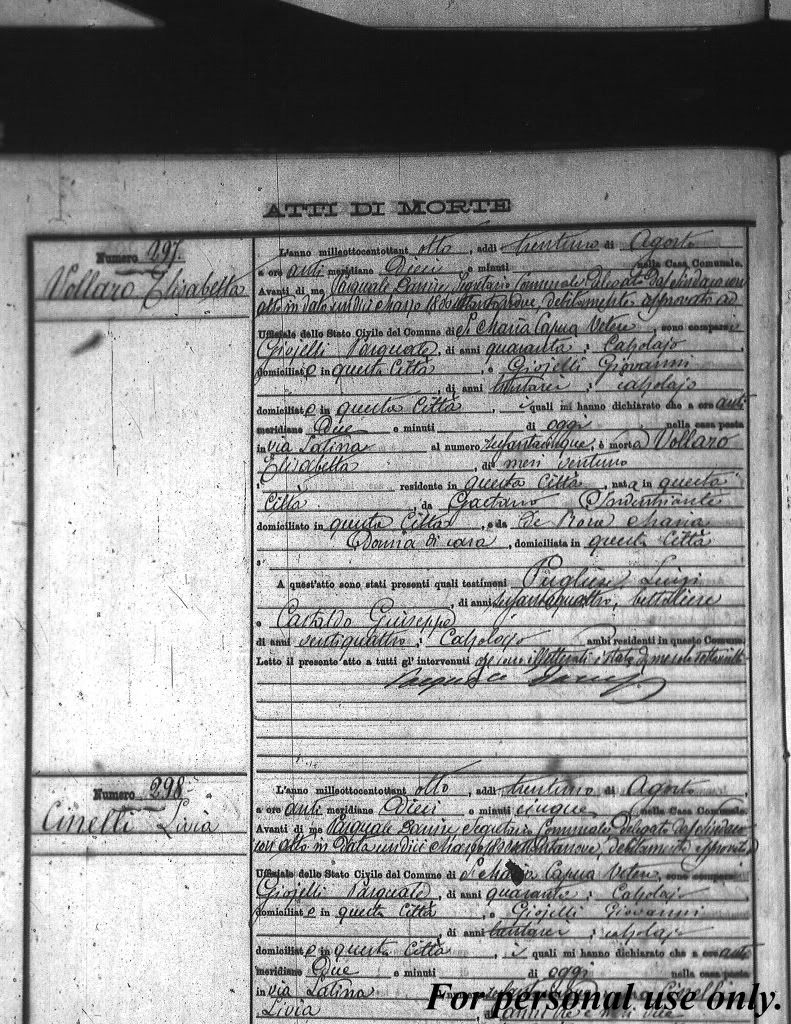 ATTI DI MORTE
Numero 297
Vollaro Elisabetta
L'anno milleottocentottant otto, addì trentuno di Agosto
a ore anti meridiane Dieci e minuti nella Casa Comunale.
Avanti di me Pasquale Segretario Comunale delegato dal Sindaco con
atto in data undici Marzo debitamente approvato ad
Uffiziale dello Stato Civile del Comune di S. Maria Capua Vetere, sono comparsi
Giojelli Pasquale, di anni quaranta; Calzolajo
domiciliato in questa Città, e Giojelli Giovanni
, di anni ; calzolajo
domiciliato in questa Città, i quali mi hanno dichiarato che a ore anti
meridiane Due e minuti di oggi nella casa posta
in via Latina al numero , è morta Vollaro
Elisabetta, di mesi ventuno
residente in questa Città, nata in questa
Città, da Gaetano
domiciliato in questa Città, e da De Maria
Donna di casa, domiciliata in questa Città
A quest'atto sono stati presenti quali testimoni Pugliese Luigi
, di anni , bettoliere
e Castaldo Giuseppe
di anni ventiquattro; Calzolajo ambi residenti in questo Comune.
Letto il presente atto a tutti gl' intervenuti
Numero 298
Cinelli Livia
L'anno milleottocentottant otto, addì trentuno di Agosto
a ore anti meridiane Dieci e minuti cinque nella Casa Comunale.
Avanti di me Pasquale Segretario Comunale delegato dal Sindaco
con atto in data undici Marzo debitamente approvato
Uffiziale dello Stato Civile del Comune di S. Maria Capua Vetere, sono comparsi
Giojelli Pasquale, di anni quaranta; Calzolajo
domiciliato in questa Città, e Giojelli Giovanni
, di anni ; calzolajo
domiciliato in questa Città, i quali mi hanno dichiarato che a ore anti
meridiane Due e minuti di oggi nella casa posta
in via Latina Cinelli
Livia
For personal use only.